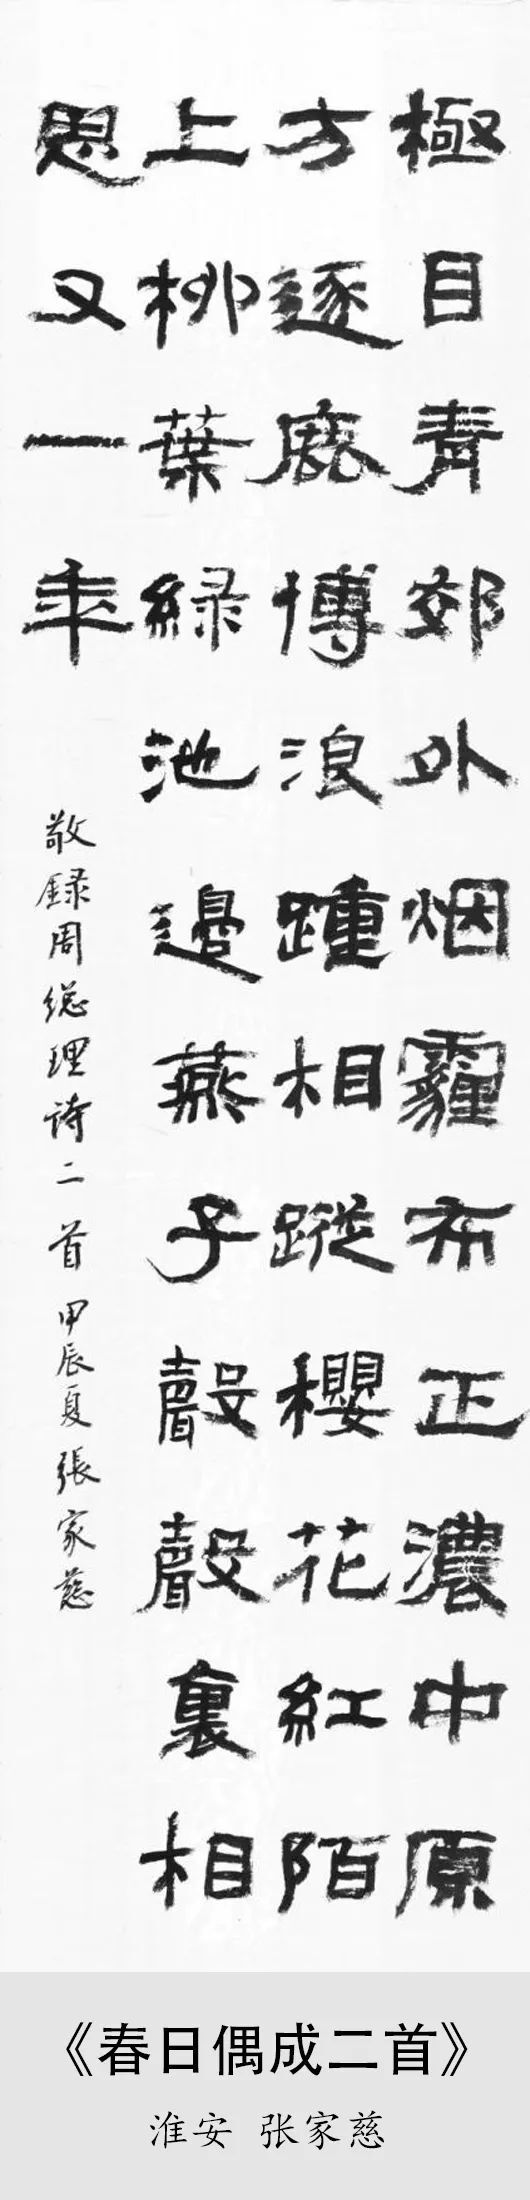 極目青郊外烟霾布正濃中原
方逐鹿博浪踵相蹤櫻花紅陌
上柳葉緑池邊燕子聲聲裏相
思又一年
敬録周総理詩二首甲辰夏張家慈
《春日偶成二首》
淮安 张家慈